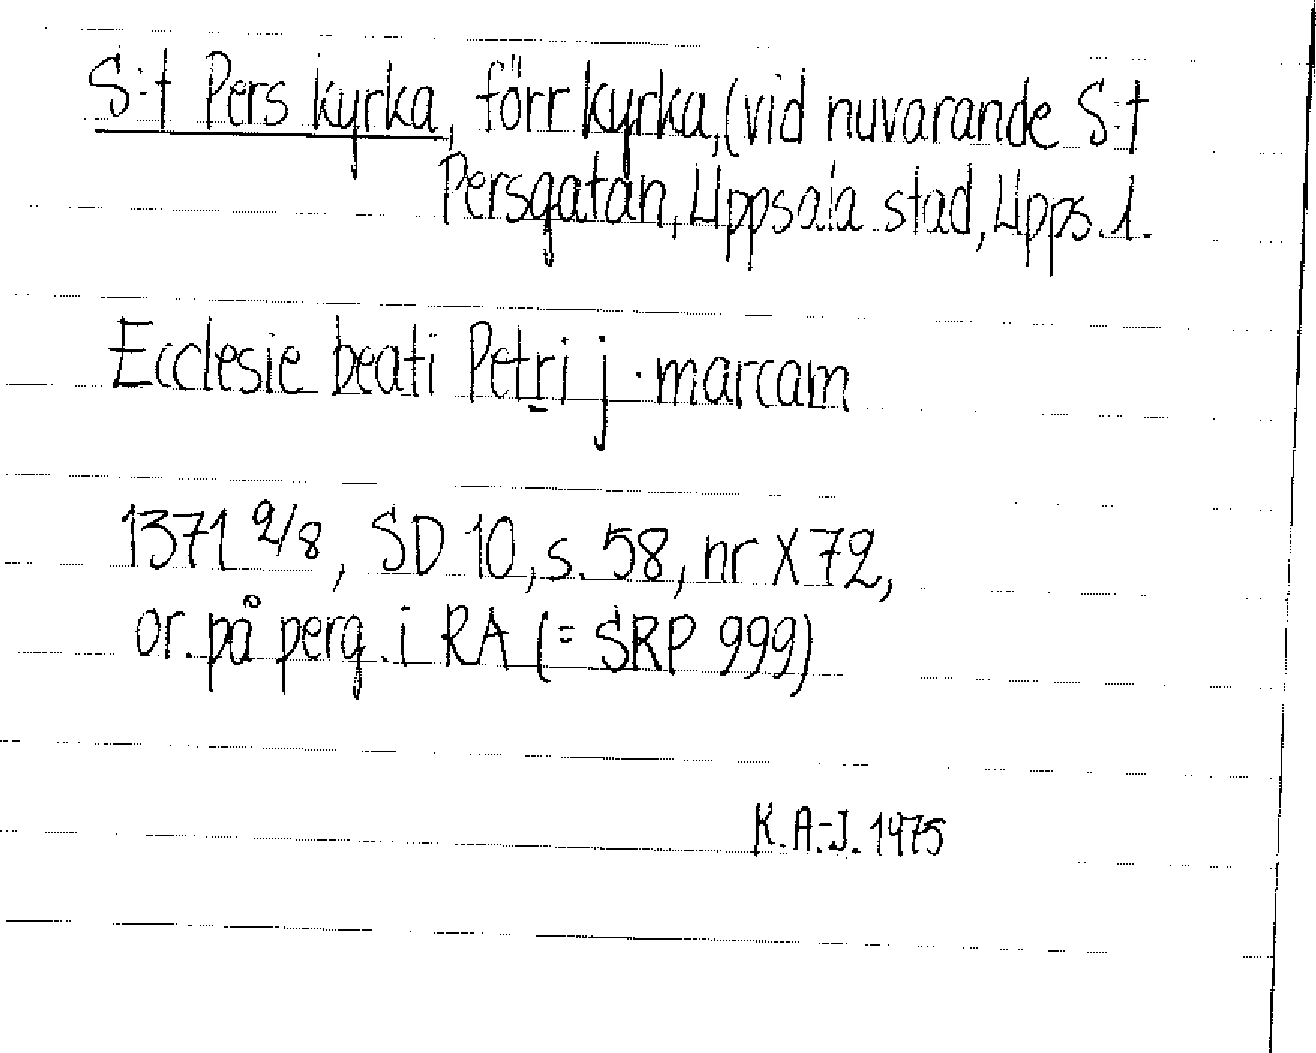 S:t Pers kyrka, förr kyrka, (vid nuvarande S:t
Persgatan, Uppsala stad, Upps. l.
Ecclesie beati Petri j · marcam
1371 9/8, SD 10, s. 58, nr X 72,
or. på perg. i RA (= SRP 999)
K. A.-J. 1975